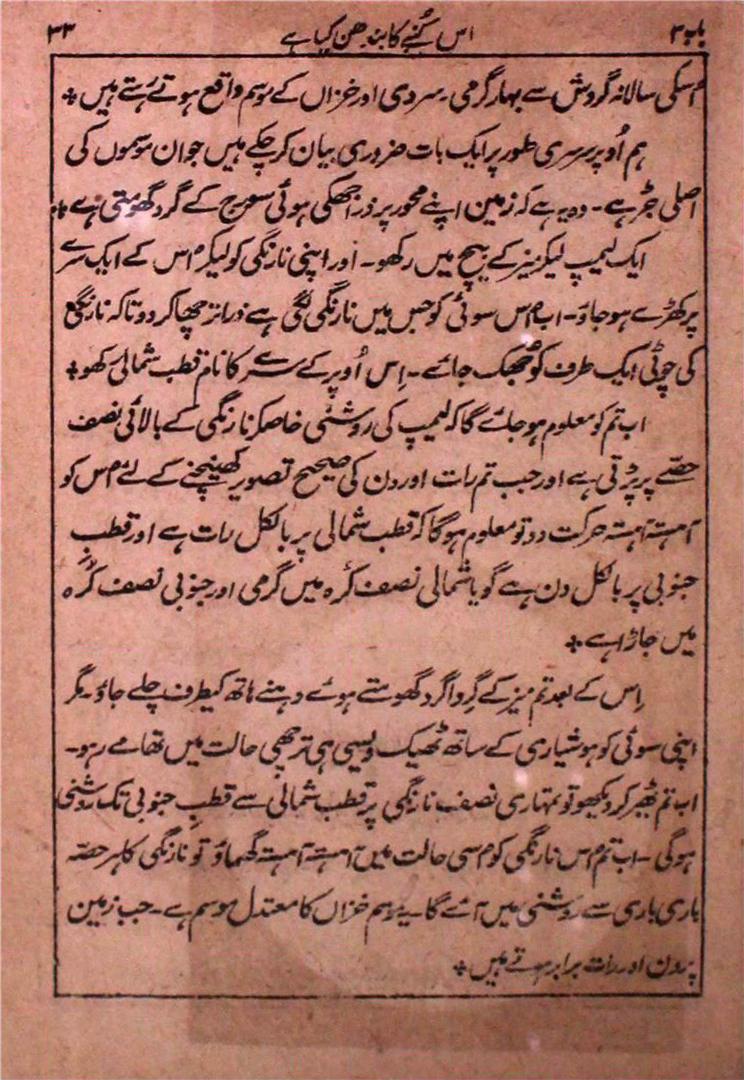 باب ۲ اس کُنبے کا بندھن کیا ہے ۳۳
اُسکی سالانہ گردش سے بہار گرمی۔ سردی اور خزاں کے موسم واقع ہوتے رہتے ہیں ✤
ہم اُوپر سرسری طور پر ایک بات ضروری بیان کر چکے ہیں جو ان موسموں کی
اصلی جڑ ہے۔ وہ یہ ہے کہ زمین اپنے محور پر ذرا جھکی ہوئی سورج کے گرد گھومتی ہے ✤
ایک لیمپ لیکر میز کے بیچ میں رکھو۔ اور اپنی نارنگی کو لیکر اُس کے ایک سرے
پر کھڑے ہو جاؤ۔ اب اُس سوئی کو جس میں نارنگی لگی ہے ذرا ترچھا کر دو تاکہ نارنگی
کی چوٹی ایک طرف کو جُھک جائے۔ اِس اُوپر کے سرے کا نام قطب شمالی رکھو ✤
اب تم کو معلوم ہو جائے گا کہ لیمپ کی روشنی خاصکر نارنگی کے بالائی نصف
حصّے پر پڑتی ہے اور جب تم رات اور دن کی صحیح تصویر کھینچنے کے لئے اُس کو
آہستہ آہستہ حرکت دو تو معلوم ہوگا کہ قطب شمالی پر بالکل رات ہے اور قطبِ
جنوبی پر بالکل دن ہے گویا شمالی نصف کُرہ میں گرمی اور جنوبی نصف کُرہ
میں جاڑا ہے ✤
اِس کے بعد تم میز کے گِرداگرد گھومتے ہوئے دہنے ہاتھ کیطرف چلے جاؤ۔ مگر
اپنی سوئی کو ہوشیاری کے ساتھ ٹھیک ویسی ہی ترچھی حالت میں تھامے رہو۔
اب تم ٹھیر کر دیکھو تو تمہاری نصف نارنگی پر قطب شمالی سے قطبِ جنوبی تک روشنی
ہوگی۔ اب تم اس نارنگی کو اُسی حالت میں آہستہ آہستہ گھماؤ تو نارنگی کا ہر حصّہ
باری باری سے روشنی میں آئے گا۔ یہ موسم خزاں کا معتدل موسم ہے۔ جب زمین
پر دن اور رات برابر ہوتے ہیں ✤